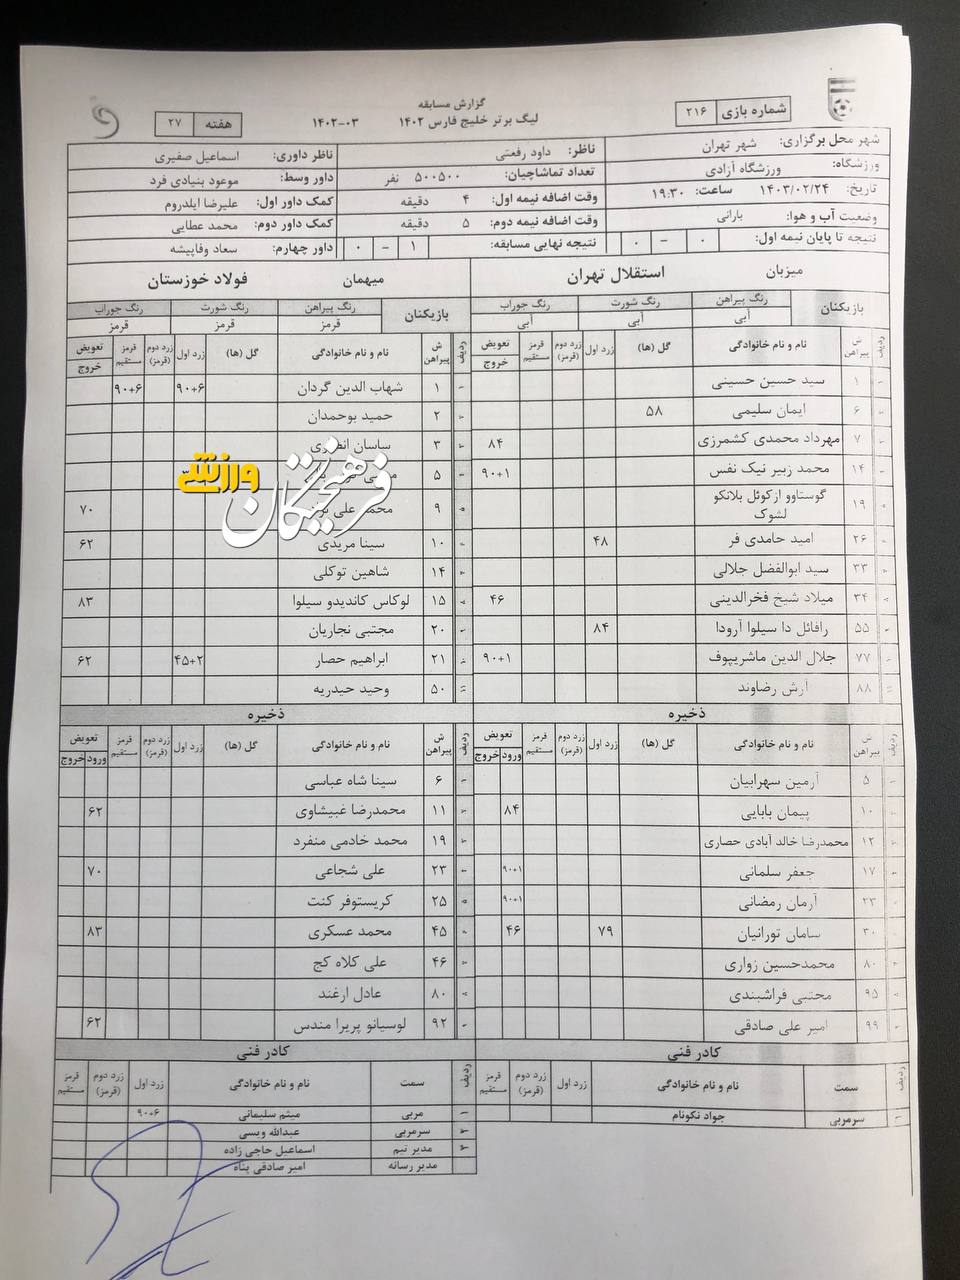 گزارش مسابقه
لیگ برتر خلیج فارس ۱۴۰۲ ۰۳-۱۴۰۲
شماره بازی ۲۱۶
هفته ۲۷
شهر محل برگزاری: شهر تهران
ورزشگاه: ورزشگاه آزادی
تاریخ: ۱۴۰۳/۰۲/۲۴ ساعت: ۱۹:۳۰
وضعیت آب و هوا: بارانی
نتیجه تا پایان نیمه اول: ۰ - ۰
ناظر: داود رفعتی
تعداد تماشاچیان: ۵۰۰۵۰۰ نفر
وقت اضافه نیمه اول: ۴ دقیقه
وقت اضافه نیمه دوم: ۵ دقیقه
نتیجه نهایی مسابقه: ۱ - ۰
ناظر داوری: اسماعیل صفیری
داور وسط: موعود بنیادی فرد
کمک داور اول: علیرضا ایلدروم
کمک داور دوم: محمد عطایی
داور چهارم: سعاد وفاپیشه
میزبان استقلال تهران
بازیکنان رنگ پیراهن رنگ شورت رنگ جوراب
آبی آبی آبی
ردیف ش پیراهن نام و نام خانوادگی گل (ها) زرد اول زرد دوم (قرمز) قرمز مستقیم تعویض خروج
۱ سید حسین حسینی
۶ ایمان سلیمی ۵۸
۷ مهرداد محمدی کشمرزی ۸۴
۱۴ محمد زبیر نیک نفس ۹۰+۱
۱۹ گوستاوو ازکوئل بلانکو لشوک
۲۶ امید حامدی فر ۴۸
۳۳ سید ابوالفضل جلالی
۳۴ میلاد شیخ فخرالدینی ۴۶
۵۵ رافائل دا سیلوا آرودا ۸۴
۷۷ جلال الدین ماشریپوف ۹۰+۱
۸۸ آرش رضاوند
ذخیره
ردیف ش پیراهن نام و نام خانوادگی گل (ها) زرد اول زرد دوم (قرمز) قرمز مستقیم تعویض ورود خروج
۵ آرمین سهرابیان
۱۰ پیمان بابایی ۸۴
۱۲ محمدرضا خالد آبادی حصاری
۱۷ جعفر سلمانی ۹۰+۱
۲۳ آرمان رمضانی ۹۰+۱
۳۰ سامان تورانیان ۷۹ ۴۶
۸۰ محمدحسین زواری
۹۵ مجتبی فراشبندی
۹۹ امیر علی صادقی
کادر فنی
ردیف سمت نام و نام خانوادگی زرد اول زرد دوم (قرمز) قرمز مستقیم
۱ سرمربی جواد نکونام
میهمان فولاد خوزستان
بازیکنان رنگ پیراهن رنگ شورت رنگ جوراب
قرمز قرمز قرمز
ردیف ش پیراهن نام و نام خانوادگی گل (ها) زرد اول زرد دوم (قرمز) قرمز مستقیم تعویض خروج
۱ شهاب الدین گردان ۹۰+۶ ۹۰+۶
۲ حمید بوحمدان
۳ ساسان انصاری
۵
۹ محمد علی ۷۰
۱۰ سینا مریدی ۶۲
۱۴ شاهین توکلی
۱۵ لوکاس کاندیدو سیلوا ۸۳
۲۰ مجتبی نجاریان
۲۱ ابراهیم حصار ۴۵+۲ ۶۲
۵۰ وحید حیدریه
فرهیختگان ورزشی
ذخیره
ردیف ش پیراهن نام و نام خانوادگی گل (ها) زرد اول زرد دوم (قرمز) قرمز مستقیم تعویض ورود خروج
۶ سینا شاه عباسی
۱۱ محمدرضا غبیشاوی ۶۲
۱۹ محمد خادمی منفرد
۲۳ علی شجاعی ۷۰
۲۵ کریستوفر کنت
۴۵ محمد عسکری ۸۳
۴۶ علی کلاه کج
۸۰ عادل ارغند
۹۲ لوسیانو پریرا مندس ۶۲
کادر فنی
ردیف سمت نام و نام خانوادگی زرد اول زرد دوم (قرمز) قرمز مستقیم
۱ مربی میثم سلیمانی ۹۰+۶
۲ سرمربی عبدالله ویسی
۳ مدیر تیم اسماعیل حاجی زاده
مدیر رسانه امیر صادقی پناه